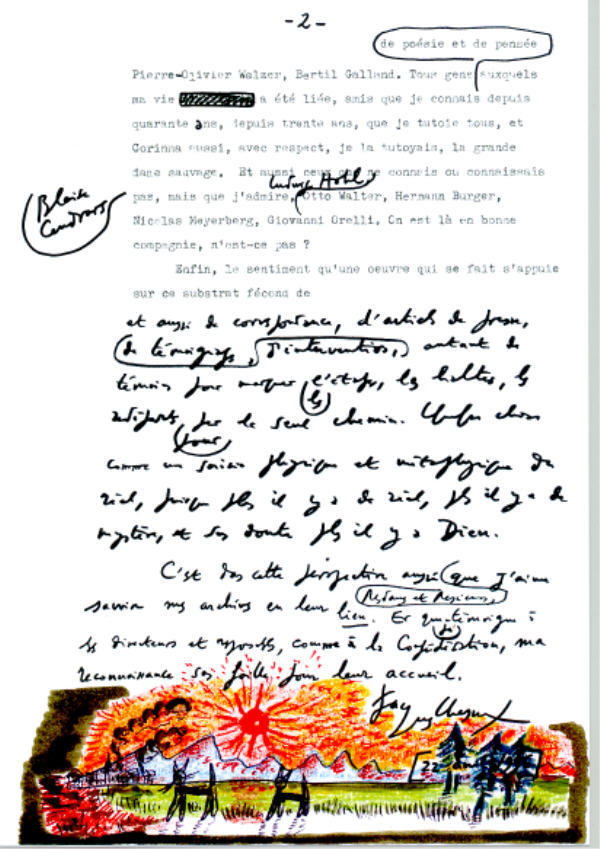 - 2 -
de poésie et de pensée
Pierre-Olivier Walzer, Bertil Galland. Tous gens auxquels
ma vie a été liée, amis que je connais depuis
quarante ans, depuis trente ans, que je tutoie tous, et
Corinna aussi, avec respect, je la tutoyais, la grande
dame sauvage. Et aussi ceux que ne connais ou connaissais
Ludwig Hohl
pas, mais que j'admire, Otto Walter, Hermann Burger,
Blaise
Cendrars
Nicolas Meyerberg, Giovanni Orelli. On est là en bonne
compagnie, n'est-ce pas ?
Enfin, le sentiment qu'une oeuvre qui se fait s'appuie
sur ce substrat fécond de
et aussi de correspondance, d'articles de presse,
de témoignages, d'interventions, autant de
témoins pour marquer les étapes, les haltes, les
les
départs, sur le seul chemin. Quelque chose
pour
comme un saisir physique et métaphysique du
réel, puisque plus il y a de réel, plus il y a de
mystère, et sans doute plus il y a Dieu.
C'est dans cette perspective aussi que j'aime
savoir mes archives en leur lieu. Et que témoigne à
les directeurs et, comme à la Confédération, ma
reconnaissance sans faille pour leur accueil.
Jacques Chessex
22